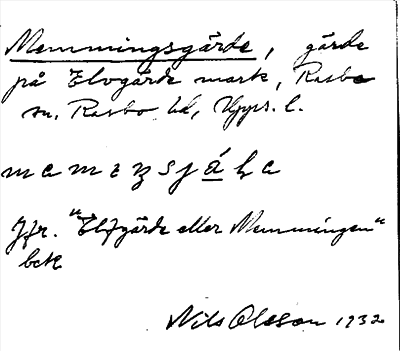 Memmingsgärde, gärde
på Elvgärde mark, Rasbo
sn. Rasbo hd, Upps. l.
Jfr. "Elfgärde eller Memmingen"
bck
Nils Olsson 1932